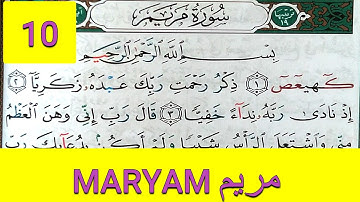 10
سُورَةُ مَرْيَمَ
بِسْمِ اللَّهِ الرَّحْمَٰنِ الرَّحِيمِ
كٓهيعٓصٓ ١ ذِكْرُ رَحْمَتِ رَبِّكَ عَبْدَهُۥ زَكَرِيَّآ ٢
إِذْ نَادَىٰ رَبَّهُۥ نِدَآءً خَفِيًّا ٣ قَالَ رَبِّ إِنِّى وَهَنَ الْعَظْمُ
مِنِّى وَاشْتَعَلَ الرَّأْسُ شَيْبًا وَلَمْ أَكُنۢ بِدُعَآئِكَ رَبِّ
MARYAM مريم